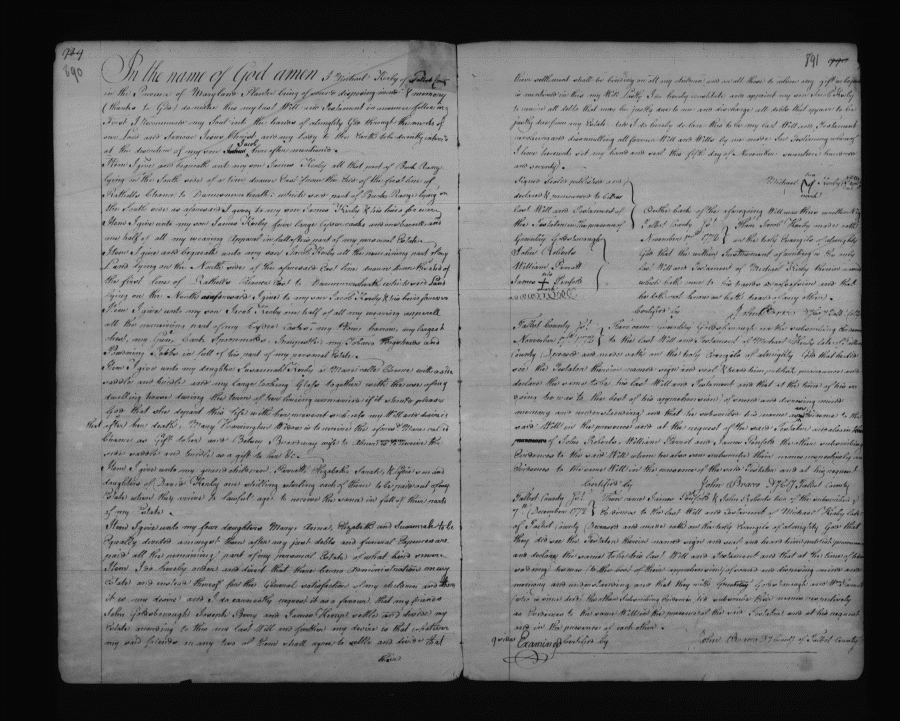 744
890
In the name of God amen I Michael Kerby of Talbot County
in the Province of Maryland Planter being of sound & disposing mind & memory
(thanks to God) do make this my last Will and Testament in manner following
First I recommend my Soul into the hands of almighty God through the merits of
our Lord and Saviour Jesus Christ and my body to the Earth to be decently interred
at the discretion of my son Jacob hereafter mentioned.
Item I give and bequeath unto my son James Kerby all that part of Buck Range
lying on the South side of a line drawn East from the end of the first line of
Ratcliffs Chance to which said part of Bucks Range lying
the South side as aforesaid I give to my son James Kerby & his heirs for ever
Item I give unto my son James Kerby four large Cyder casks and
one half of all my wearing apparel in full of his part of my personal Estate
Item I give and bequeath unto my son Jacob Kerby all the remaining part of my
Land lying on the North side of the aforesaid East line drawn from the end of
the first line of Ratcliffs Chance East to which said Land
lying on the North aforesaid I give to my son Jacob Kerby & his heirs forever
Item I give unto my son Jacob Kerby one half of all my wearing apparell
all the remaining part of my Cyder Casks, my largest
chest, my Gun, my Tobacco Hogsheads and
in full of his part of my personal Estate
Item I give unto my daughter Susannah Kerby a Mare called Chance with a side
saddle and bridle and my large Looking Glass together with the use of my
dwelling house during the time of her living unmarried if it should please
God that she depart this life with her my Will and desire is
that after her death Mary Harrington Widow is to receive the aforesd Mare called
Chance as Gift to her and Betsey Broadway wife to the
side saddle and bridle as a gift to her &c
Item I give unto my grand children Elizabeth Sarah, & Lydia
daughters of David Kerby one shilling sterling each of them to be paid out of my
Estate when they arrive to lawful age to receive the same in full of their parts
of my Estate.
Item I give unto my four daughters Mary Anna, Elizabeth and Susannah to be
Equally divided amongst them after my just debts and funeral Expences are
paid all the remaining part of my personal Estate of what kind soever
Item I do hereby order and direct that there be no Administration on my
Estate and instead thereof for the General satisfaction of my children and
it is my desire and I do earnestly request it as a favour that my friends
John Goldsborough Joseph Berry and James Kemp settle and divide my
Estate according to this my last Will and further my desire is that whatever
my said friends or any two of them shall agree to settle and divide that
their
891
their settlement shall be binding on all my children and on all those to whom any gift or bequest
is mentioned in this my Will. Lastly I do hereby constitute and appoint my son Jacob Kerby
to receive all debts that may be justly due to me and discharge all debts that appear to be
justly due from my Estate. and I do hereby declare this to be my last Will and Testament
and disannulling all former Will and Wills by me made In Testimony whereof
I have hereunto set my hand and seal this fifth day of November seventeen hundred
and seventy
Signed Sealed published and
declared & pronounced to be his
last Will and Testament of
the Testator in the presence of
Greenbury Goldsborough
John Roberts
William Parrott
James + Penfold
Michael his mark Kerby Seal
On the back of the aforegoing Will was thus written viz
Talbot County Ss
November 17th 1772
Then Jacob Kerby made oath
on the holy Evangels of almighty
God that the within Instrument of writing is the only
last Will and Testament of Michael Kerby therein named
which hath come to his hands or possession and that
he doth not know nor hath heard of any other.
Certified by
John Bracco
Talbot County Ss
November 17th 1772
Then came Greenbury Goldsborough one of the subscribing Evidences
to the last Will and Testament of Michael Kerby late of Talbot
County Deceased and made oath on the holy Evangels of almighty God that he did
see the Testator therein named sign and seal & heard him publish pronounce and
declare the same to be his last Will and Testament and that at the time of his so
doing he was to the best of his apprehension of sound and disposing mind
memory and understanding and that he subscribed his name as Evidence to the
said Will in the presence and at the request of the said Testator and also in
of John Roberts William Parrott and James Penfold the other subscribing
Evidences to the said Will whom he also saw subscribe their names respectively as
Evidences to the same Will in the presence of the said Testator and at his request
Certified by
John Bracco Dy Comy Talbot County
Talbot County Ss
7th December 1772
Then came James Penfold & John Roberts two of the subscribing
Evidences to the last Will and Testament of Michael Kerby late
of Talbot County Deceased and made oath on the holy Evangels of almighty God that
they did see the Testator therein named sign and seal and heard him publish pronounce
and declare the same to be his last Will and Testament and that at the time of his so
doing he was (to the best of their apprehension) of sound and disposing mind and
memory and understanding and that they with Greenbury Goldsborough and Wm Parrott
who is since dec'd the other subscribing Evidences did subscribe their names respectively
as Evidences to the same Will in the presence of the said Testator and at his request
and in the presence of each other.
Examined
Certified by
John Bracco Dy Comy of Talbot County